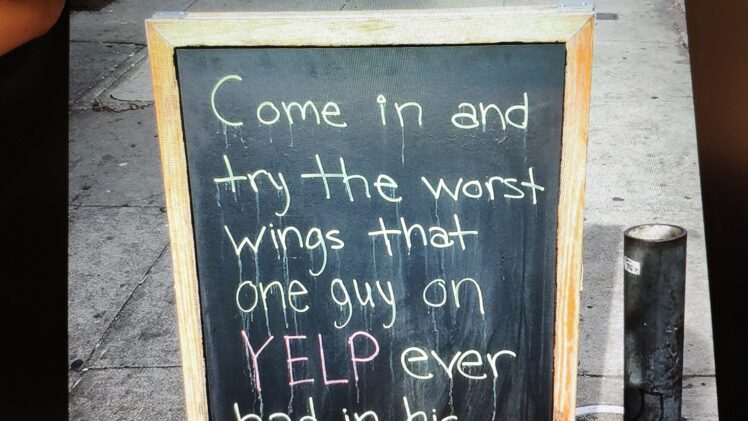 Come in and
try the worst
wings that
one guy on
YELP ever
had in his